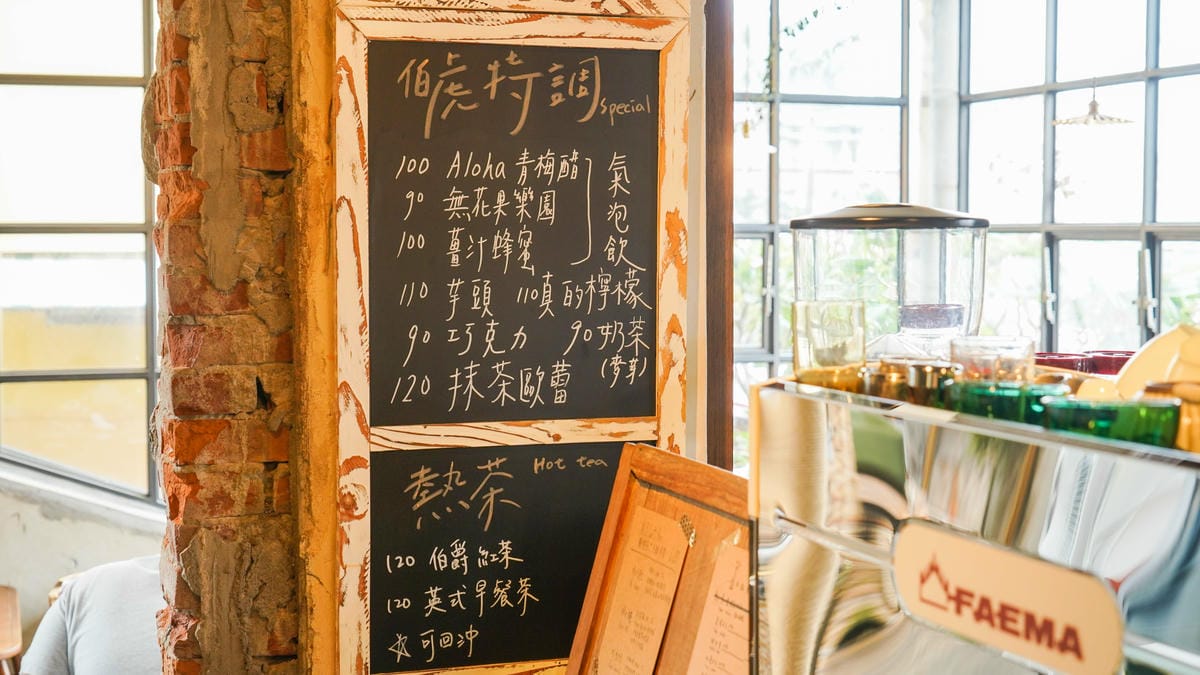 伯虎特調
special
100 Aloha 青梅醋
90 無花果樂園
100 薑汁蜂蜜
氣泡飲
110 芋頭 110真的檸檬
90 巧克力 90奶茶
(麥芽)
120 抹茶歐蕾
熱茶 Hot tea
120 伯爵紅茶
120 英式早餐茶
☆可回沖
FAEMA